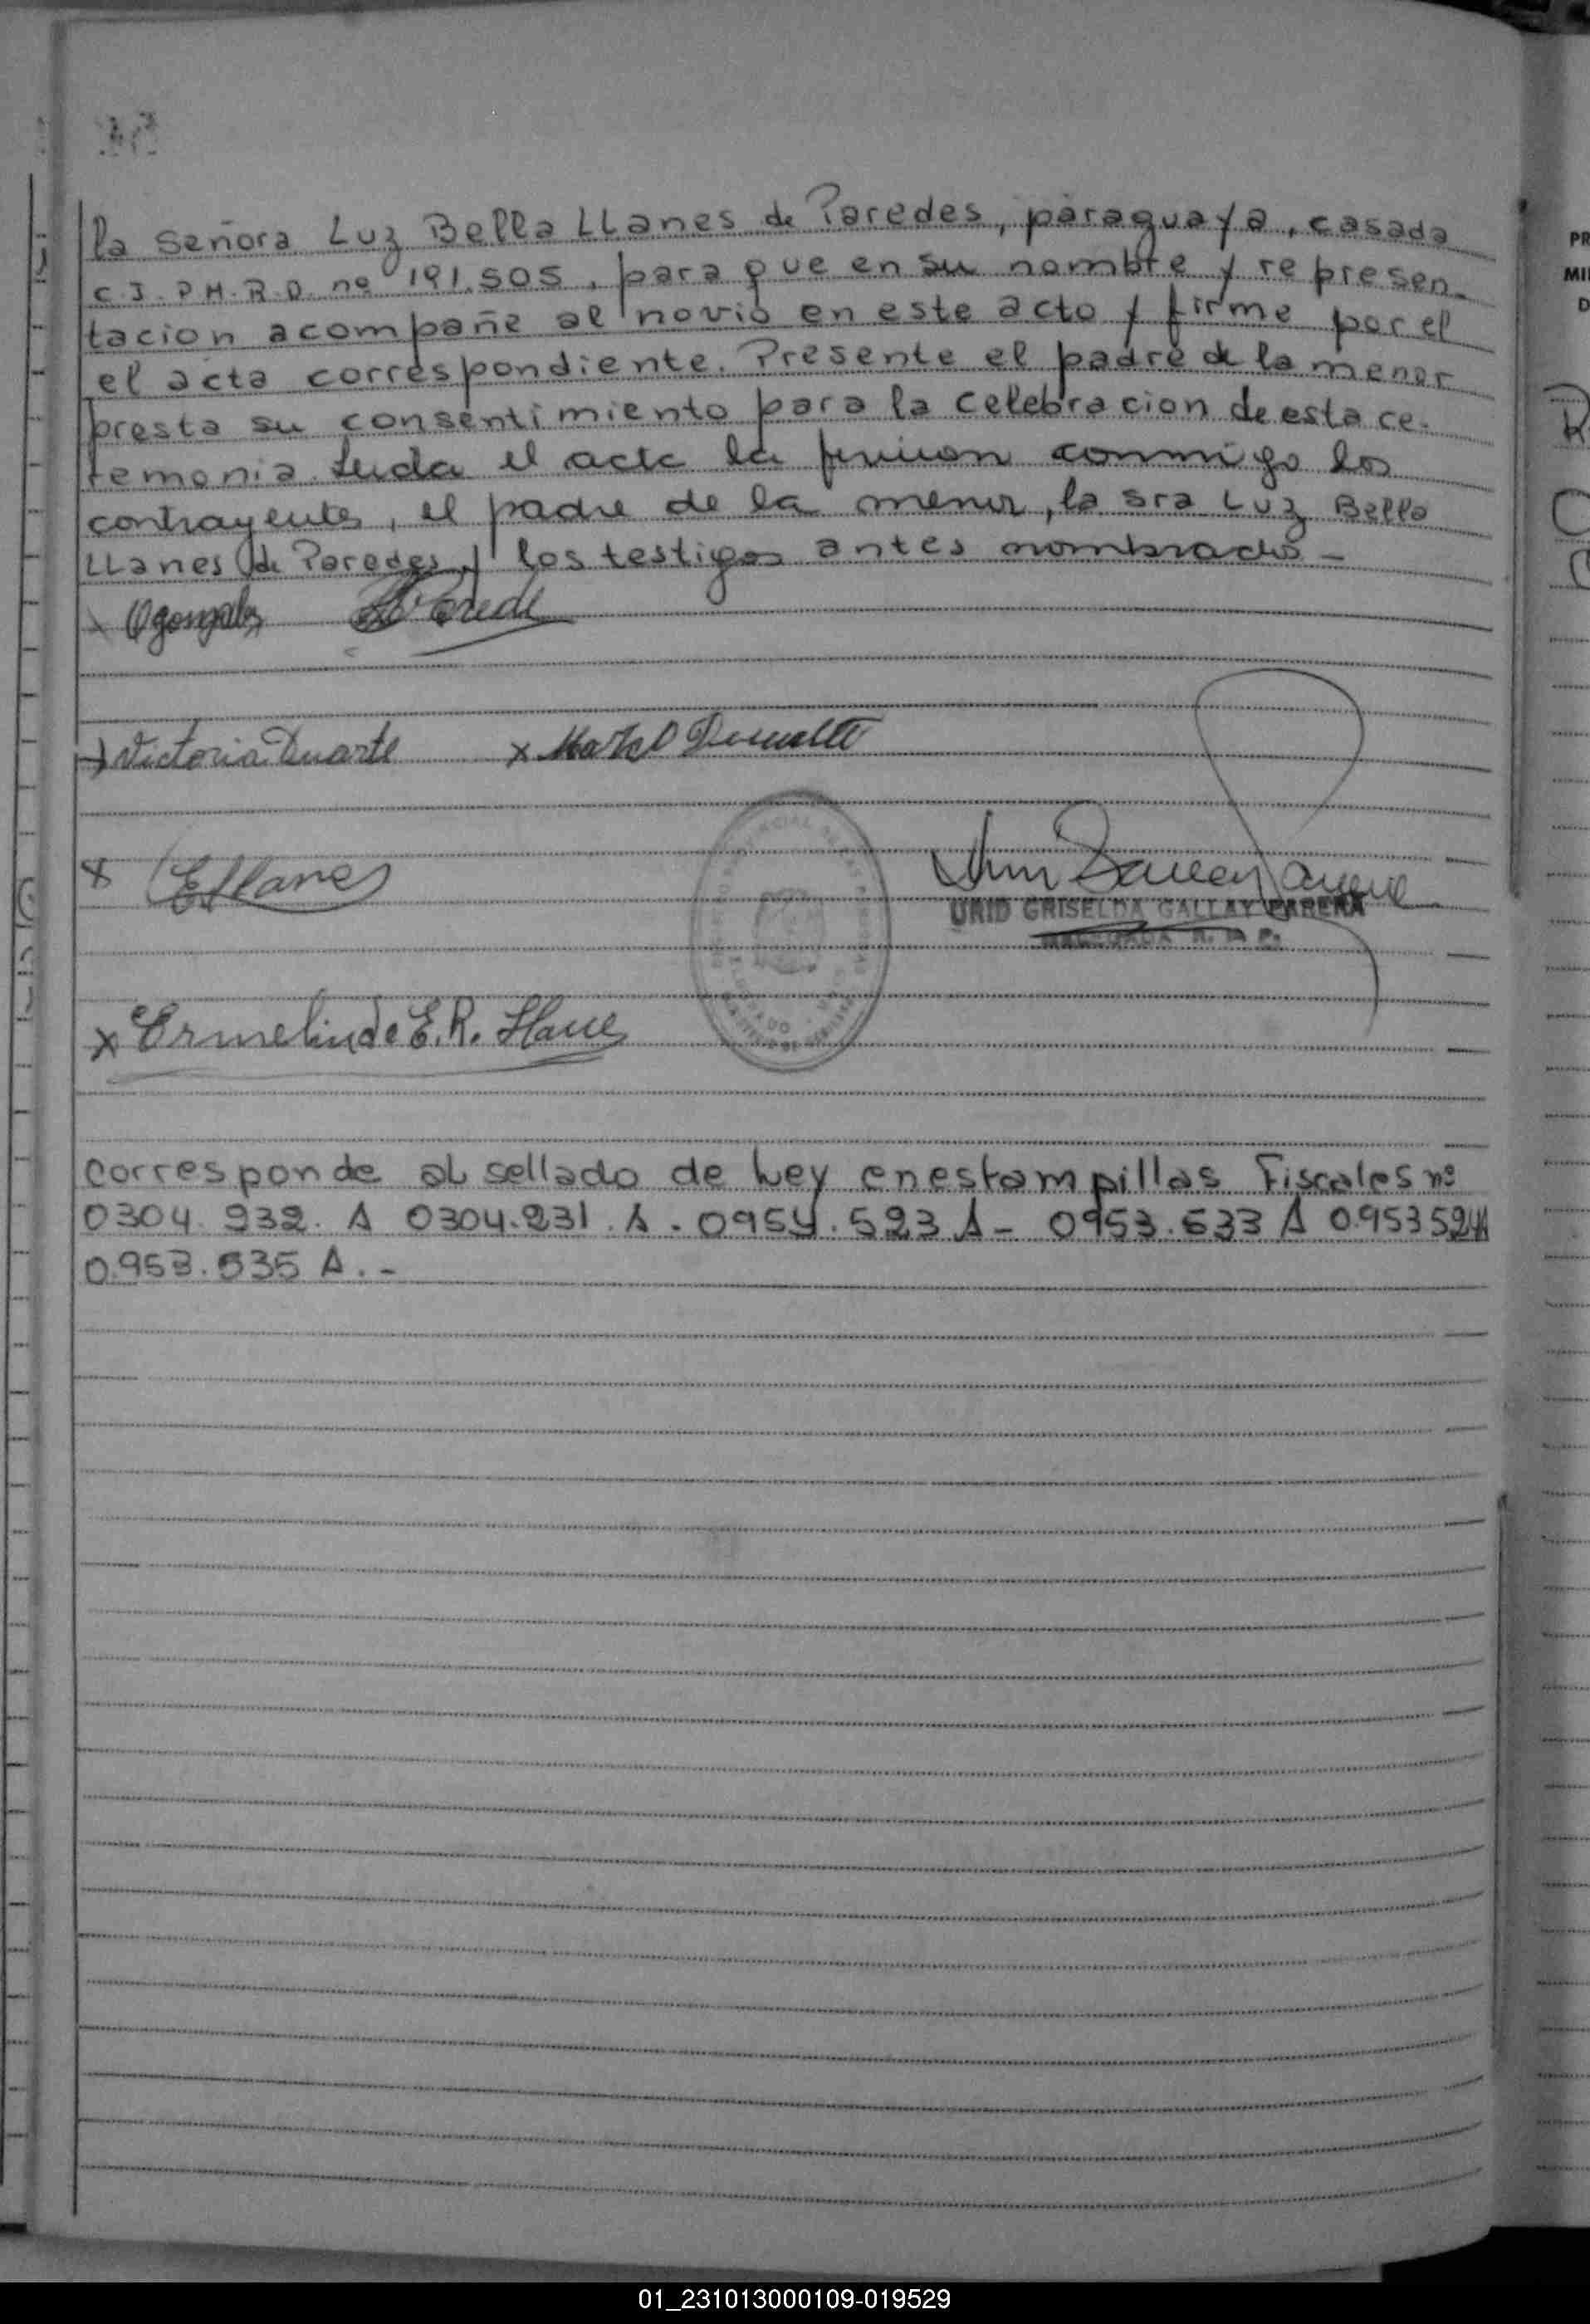 la señora Luz Bella LLanes de Paredes, paraguaya, casada
C.I. P.H.R.D. nº 191.505, para que en su nombre y represen-
tacion acompañe al novio en este acto y firme por el
el acta correspondiente. Presente el padre de la menor
presta su consentimiento para la celebracion de esta ce-
remonia. Leida el acta la firman conmigo los
contrayentes, el padre de la menor, la sra Luz Bella
LLanes de Paredes y los testigos antes nombrados -
x Ogonzalez
Victoria Duarte x
x ELlanes
URID GRISELDA GALLAY PARERA
x Ermelinda E.R. Llane
corresponde al sellado de Ley en estampillas Fiscales nº
0304.932. A 0304.231. A. 0954.523 A - 0953.533 A 0.953524A
0.953.535 A. -
PR
MI
D
01_231013000109-019529